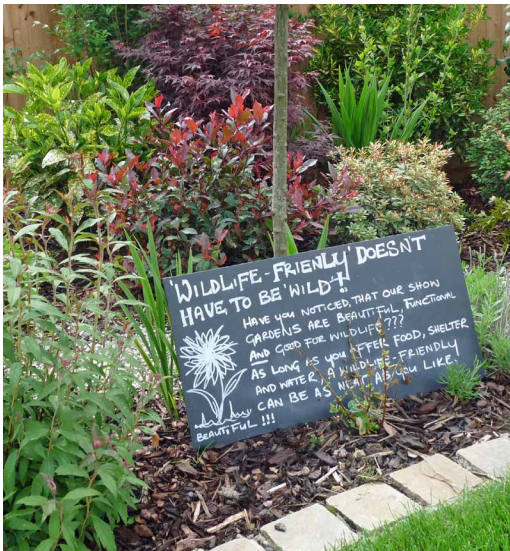 'WILDLIFE-FRIENLY' DOESN'T
HAVE TO BE 'WILD'!
HAVE YOU NOTICED THAT OUR SHOW
GARDENS ARE BEAUTIFUL, FUNCTIONAL
AND GOOD FOR WILDLIFE???
AS LONG AS YOU OFFER FOOD, SHELTER
AND WATER, A WILDLIFE-FRIENDLY
CAN BE AS NEAT AS YOU LIKE!
BEAUTIFUL!!!